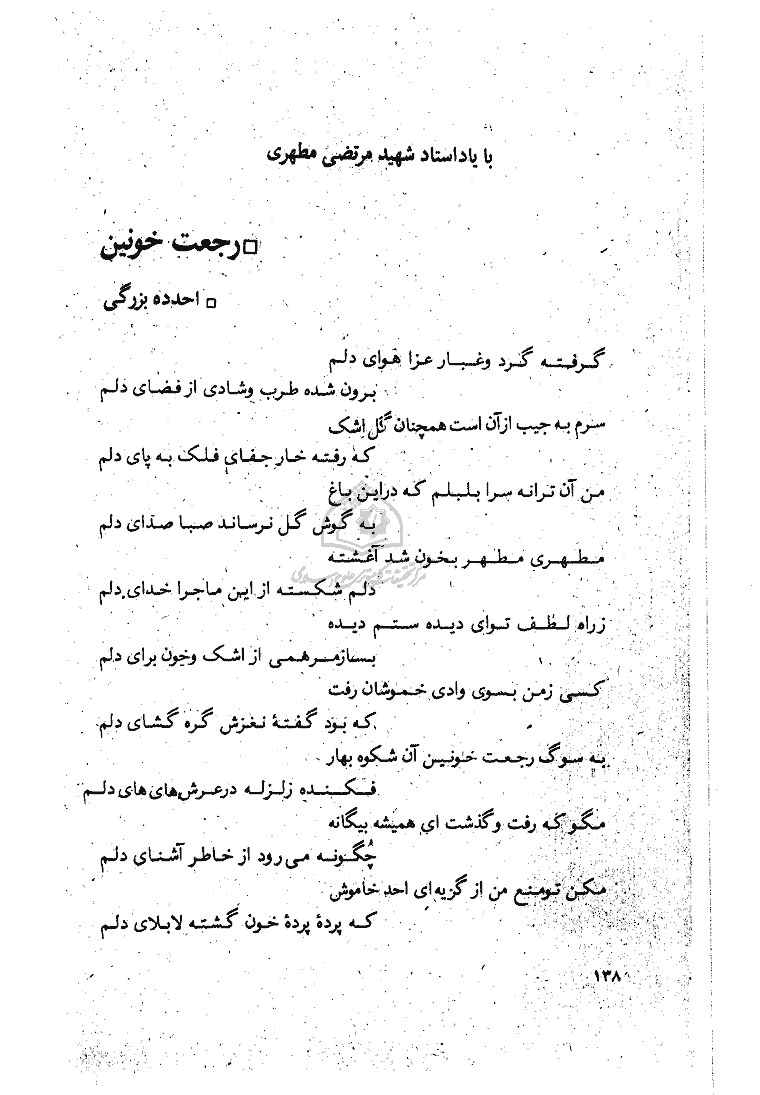 با یاداستاد شهید مرتضی مطهری
□رجعت خونین
□ احدده بزرگی
گرفته گرد وغبار عزا هوای دلم
برون شده طرب وشادی از فضای دلم
سرم به جیب ازآن است همچنان گل اشک
که رفته خار جفای فلک به پای دلم
من آن ترانه سرا بلبلم که دراین باغ
به گوش گل نرساند صبا صدای دلم
مطهری مطهر بخون شد آغشته
دلم شکسته از این ماجرا خدای دلم
زراه لطف توای دیده ستم دیده
بسازمرهمی از اشک وخون برای دلم
کسی زمن بسوی وادی خموشان رفت
که بود گفتهٔ نغزش گره گشای دلم
به سوگ رجعت خونین آن شکوه بهار
فکنده زلزله درعرش های های دلم
مگو که رفت وگذشت ای همیشه بیگانه
چگونه می رود از خاطر آشنای دلم
مکن تومنع من از گریه ای احد خاموش
که پردهٔ پردهٔ خون گشته لابلای دلم
۱۳۸